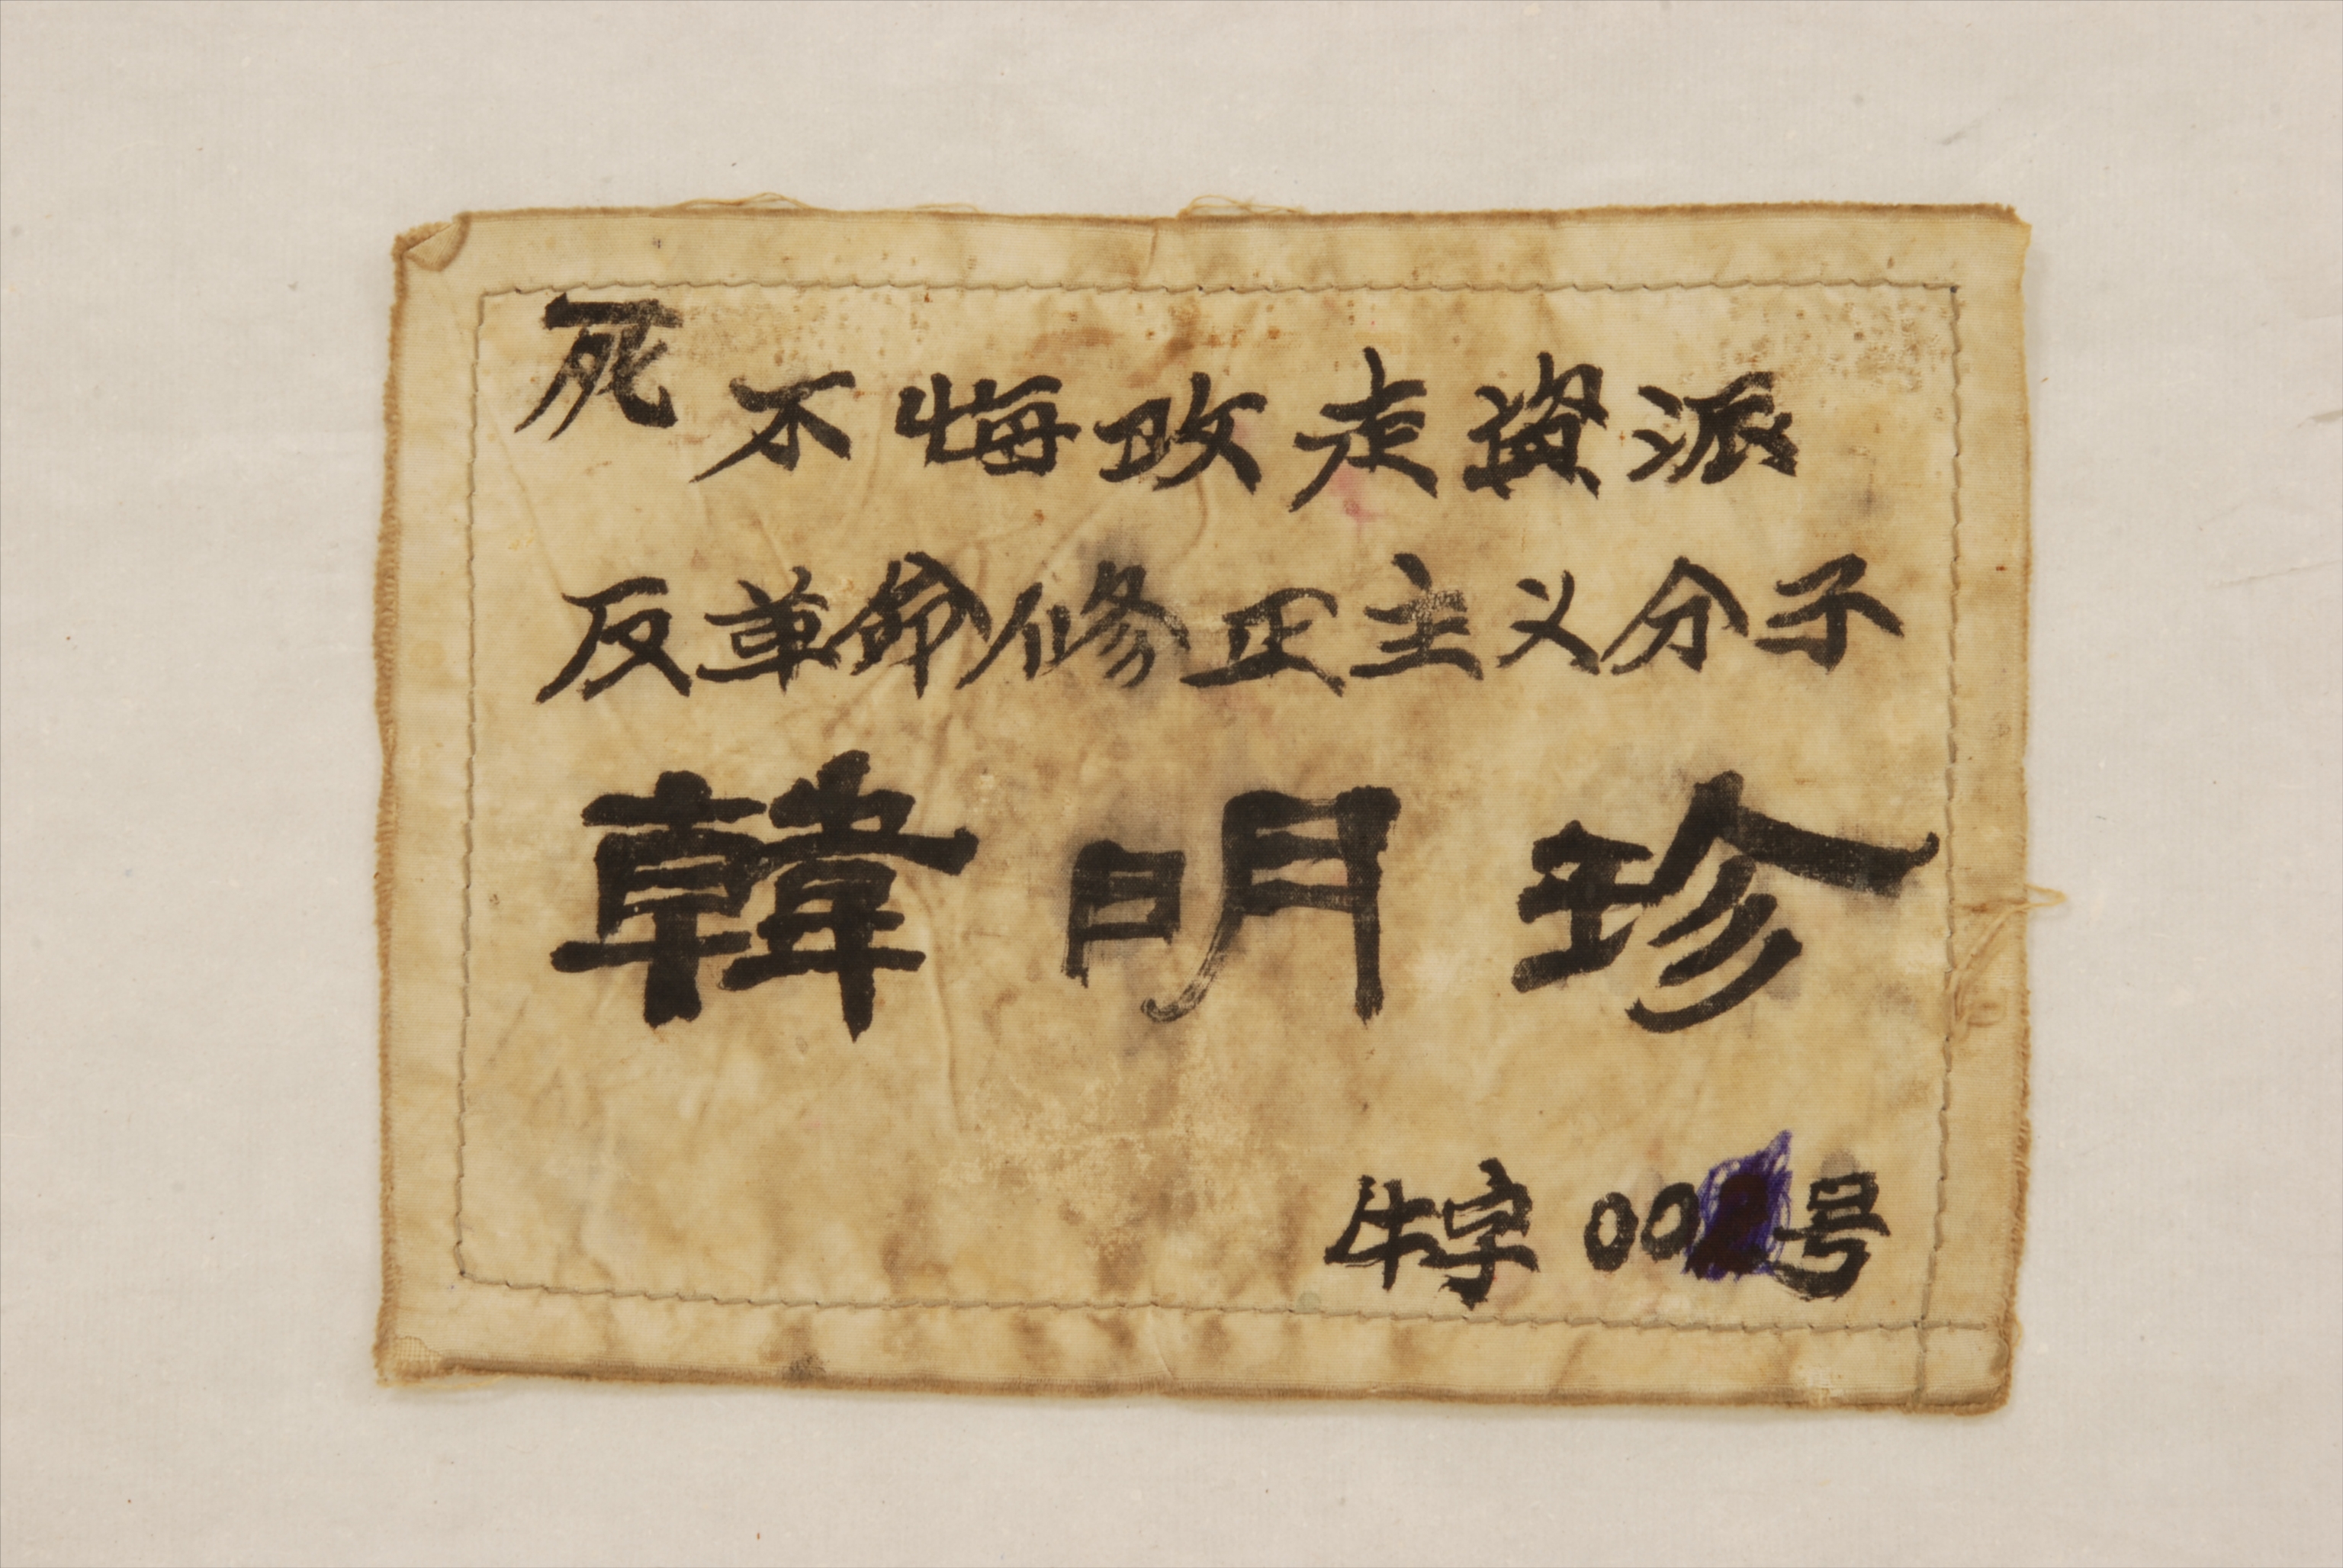 死不悔改走資派
反革命修正主义分子
韓明珍
牛字 00号